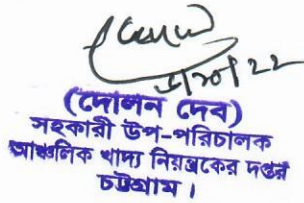 (দোলন দেব)
সহকারী উপ-পরিচালক
আঞ্চলিক খাদ্য নিয়ন্ত্রকের দপ্তর
চট্টগ্রাম।